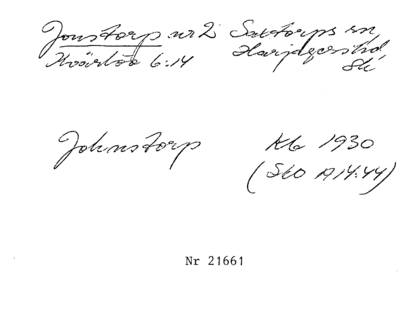 Jonstorp nr 2 Saxtorps sn
Kvärlöv 6:14 Harjagers hd
Sk
Johnstorp Kb 1930
(SkO A14:44)
Nr 21661